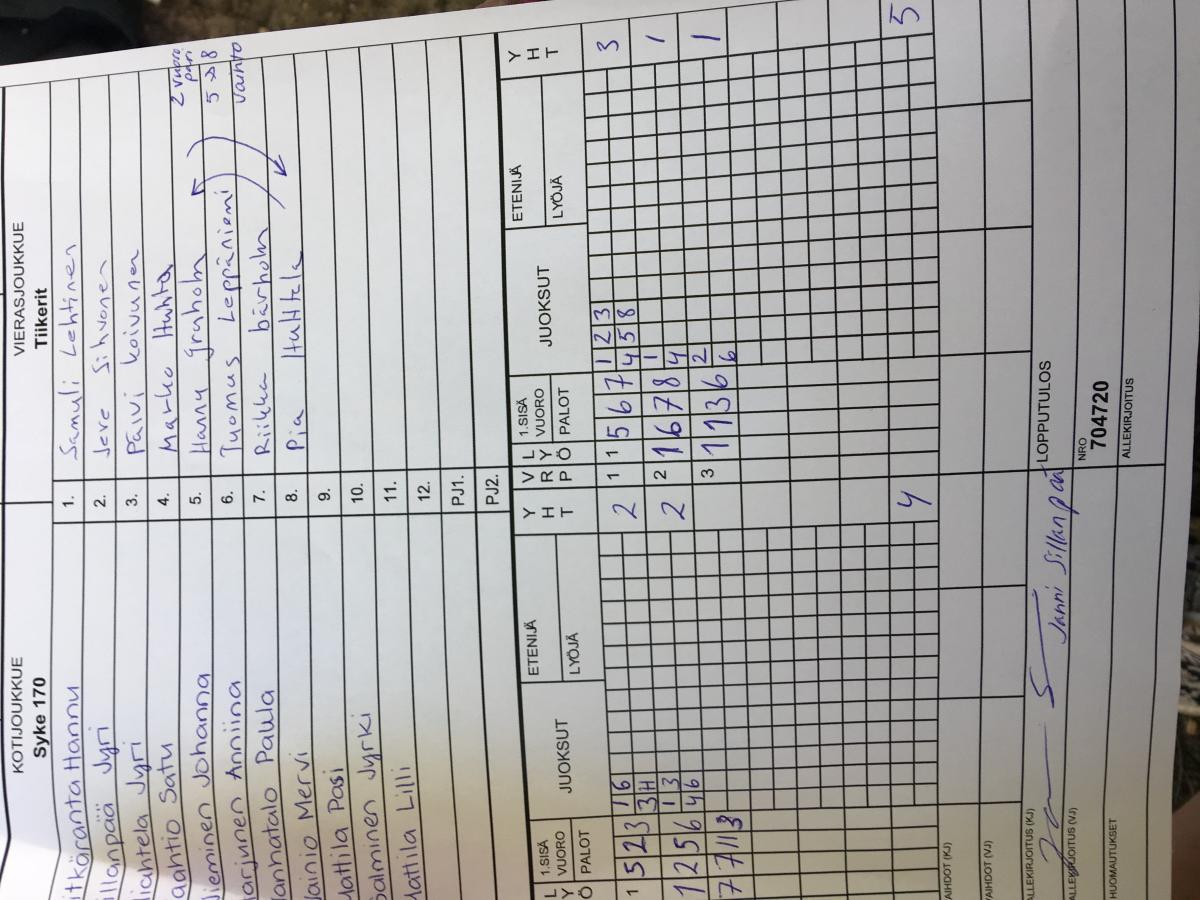 KOTIJOUKKUE
Syke 170
itkäranta Hannu
illanpää Jyri
liahtela Jyri
aahtio Satu
Nieminen Johanna
arjunen Anniina
anhatalo Paula
ainio Mervi
attila Pasi
alminen Jyrki
attila Lilli
VIERASJOUKKUE
Tiikerit
1. Samuli Lehtinen
2. Jere Sihvonen
3. Päivi Koivunen
4. Marko Huhta
2 vuoro
pari
5. Hannu Granholm
5 → 8
6. Tuomas Leppäniemi
vaihto
7. Riikka bärholm
8. Pia Huttela
9.
10.
11.
12.
PJ1.
PJ2.
L Y Ö 1.SISÄ VUORO PALOT JUOKSUT ETENIJÄ LYÖJÄ Y H T
1 5 2 3 1 6 2
3 H
1 2 5 6 1 3 2
4 6
7 7 11 3
4
V R P L Y Ö 1.SISÄ VUORO PALOT JUOKSUT ETENIJÄ LYÖJÄ Y H T
1 1 5 6 7 1 2 3 3
4 5 8
2 1 6 7 8 1 1
4
3 1 1 3 6 2 1
6
5
AIHDOT (KJ)
AIHDOT (VJ)
ALLEKIRJOITUS (KJ)
ALLEKIRJOITUS (VJ)
Janni Sillanpää
HUOMAUTUKSET
LOPPUTULOS
NRO
704720
ALLEKIRJOITUS